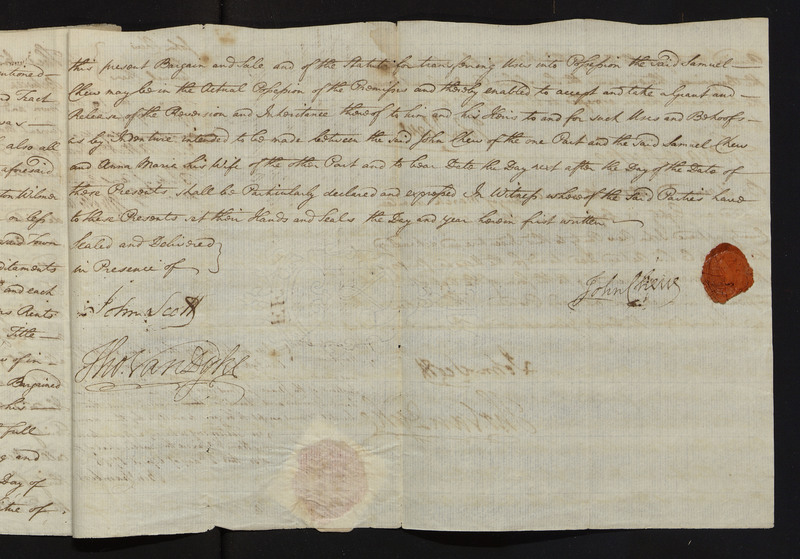 this present Bargain and Sale and of the Statute for transferring Uses into Possession the said Samuel
Chew may be in the Actual Possession of the Premisses and thereby enabled to accept and take a Grant and
Release of the Reversion and Inheritance thereof to him and his Heirs to and for such Uses and Behoofs
as by Indenture intended to be made between the said John Chew of the one Part and the said Samuel Chew
and Anna Maria his wife of the other Part and to bear Date the Day next after the Day of the Date of
these Presents shall be Particularly declared and expressed In Witness whereof the said Parties have
to these Presents set their Hands and Seals the Day and year herein first written
Sealed and Delivered
in Presence of
John Scott
Tho. Van Dyke
John Chew
and Tract
was
also all
aforesaid
Wilmer
or less
said Town
and each
Rents
Title
Bargained
his
full
and
Day of
of